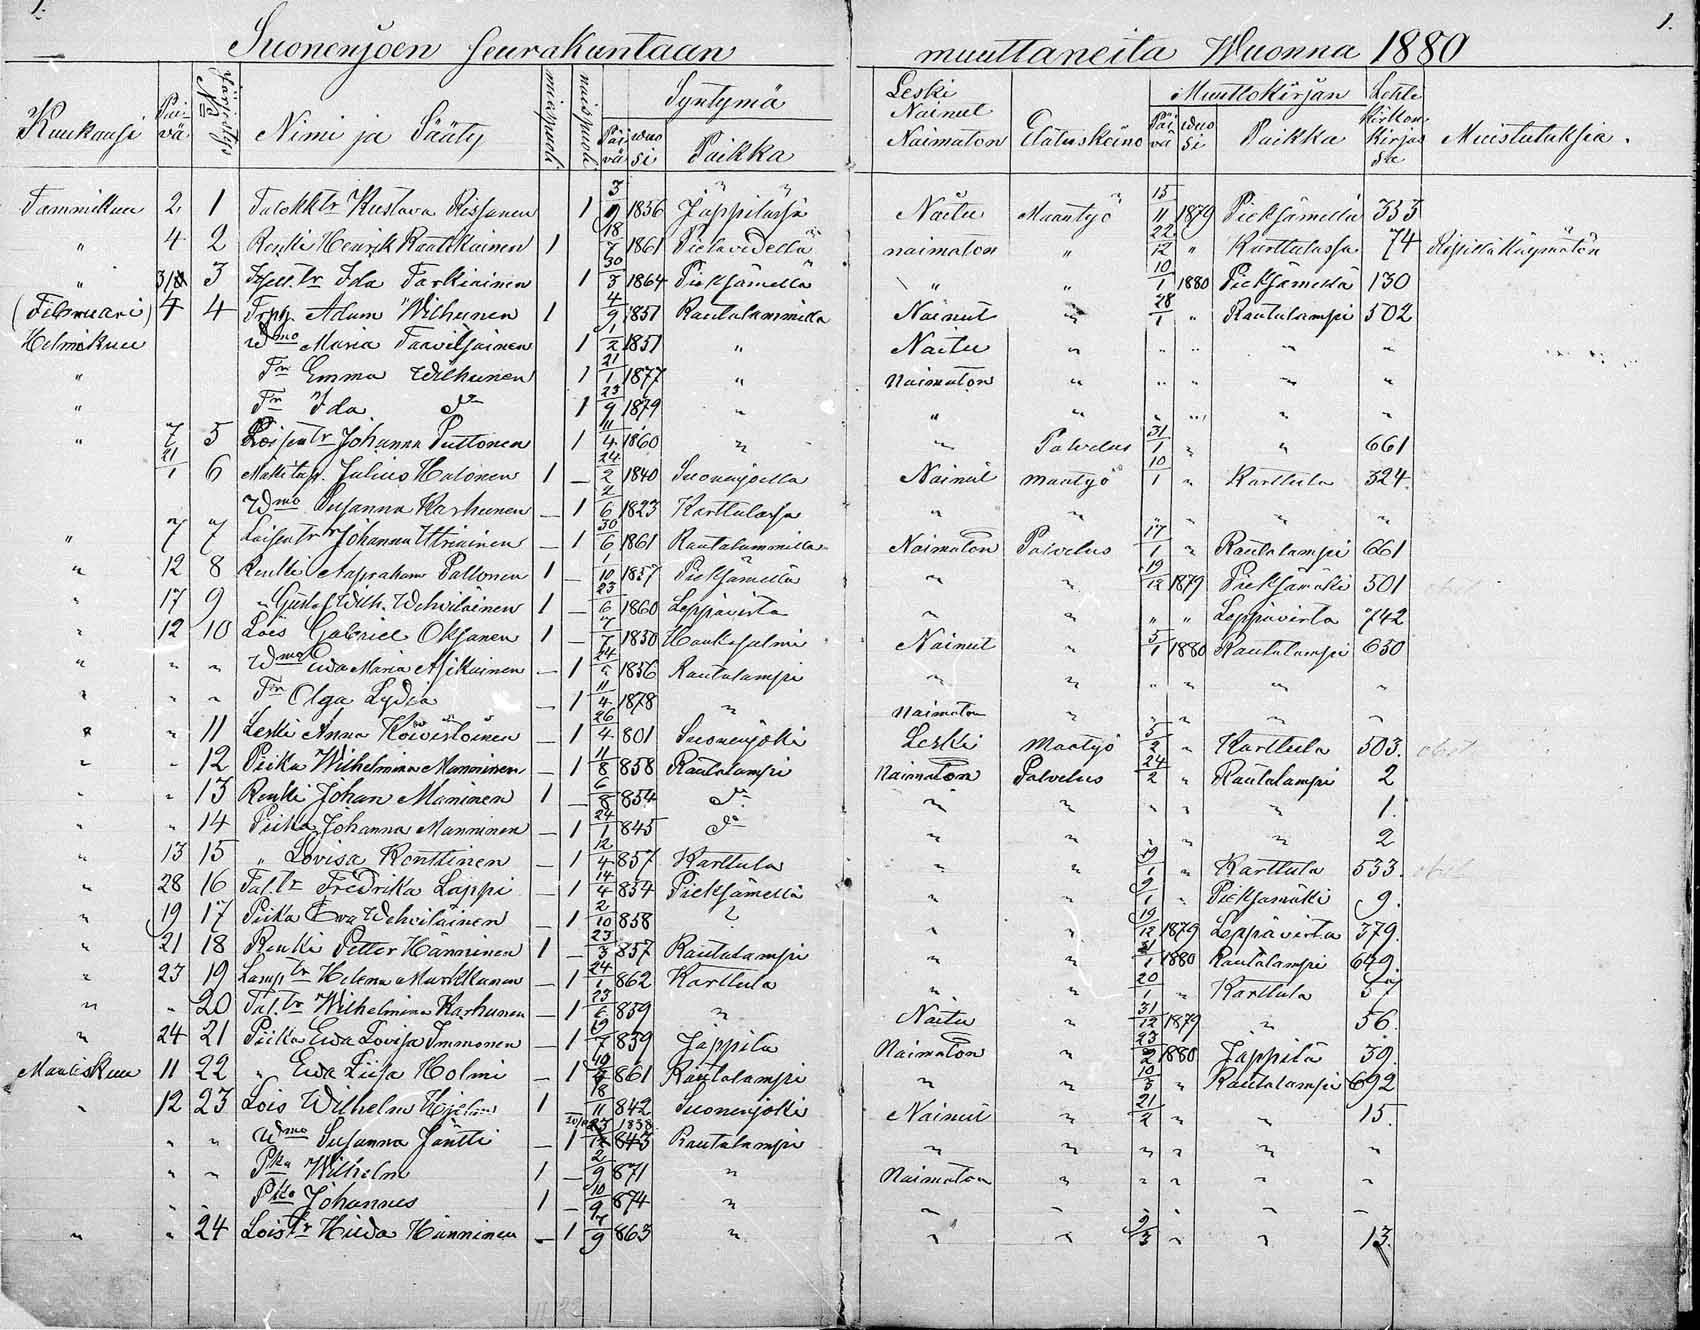 1. 1.
Suonenjoen seurakuntaan muuttaneita Wuonna 1880
Kuukausi Päivä No Nimi ja Sääty miespuoli naispuoli Syntymä Päivä wuosi Paikka Leski Nainut Naimaton Elatuskeino Muuttokirjan Päivä wuosi Paikka Lehti kirkonkirjassa Muistutuksia.
Tammikuu 2 1 Talokktr Kustava Rissanen 1 3/9 1836 Jäppilässä Naitu Maantyö 15/11 1879 Pieksämellä 333
" 4 2 Renki Henrik Rautiainen 1 18/7 1861 Pielavedellä naimaton " 22/12 " Karttulassa 74 Ripillä käymätön
" 3 Ida Tarkiainen 1 30/3 1864 Pieksämellä " " 10/1 1880 Pieksämellä 130
(Februari) 4 4 Adam Wilhunen 1 4/9 1851 Rautalammilla Nainut " 28/1 " Rautalampi 502
Helmikuu Wmo Maria Taavitsainen 1 1/2 1851 " Naitu " " " " "
" Tr Emma Wilhunen 1 21/1 1877 " naimaton " " " " "
" Tr Ida do 1 23/9 1879 " " " " " " "
" 7 5 Loisentr Johanna Puttonen 1 11/4 1860 " " Palvelus 31/1 " " 661
21/1 6 Julius Halonen 1 — 24/2 1840 Suonenjoella Nainut maatyö 10/1 " Karttula 324.
Wmo Susanna Karhunen — 1 2/6 1823 Karttulassa " " " " " "
" 7 7 Loisentr Johanna Utriainen — 1 30/6 1861 Rautalammilla Naimaton Palvelus 17/1 " Rautalampi 661
" 12 8 Renki Aapraham Pallonen 1 — 1/10 1857 Pieksämellä " " 19/12 1879 Pieksämäki 501
" 17 9 " Gustaf Wilh. Wehviläinen 1 — 23/6 1860 Leppävirta " " " " Leppävirta 742
" 12 10 Lois Gabriel Oksanen 1 — 7/7 1830 Hankasalmi Nainut " 5/1 1880 Rautalampi 650
" " " Wmo Ewa Maria Asikainen — 1 1856 Rautalampi " " " " " "
" " " Tr Olga Lydia — 1 11/4 1878 " naimaton " " " " "
" " 11 Leski Anna Koivistoinen — 1 26/4 801 Suonenjoki Leski maatyö 5/2 " Karttula 503.
" " 12 Piika Wilhelmina Manninen — 1 11/8 858 Rautalampi Naimaton Palvelus 24/2 " Rautalampi 2
" " 13 Renki Johan Maninen 1 — 6/8 854 do " " " " " 1.
" " 14 Piika Johanna Manninen — 1 24/1 845 do " " " " " 2
" 13 15 " Lovisa Konttinen — 1 12/4 857 Karttula " " 19/1 " Karttula 533.
" 28 16 Tal.tr Fredrika Lappi — 1 14/4 854 Pieksämellä " " 9/1 " Pieksämäki 9.
" 19 17 Piika Ewa Wehviläinen — 1 2/10 858 " " " 19/12 1879 Leppävirta 379.
" 21 18 Renki Petter Hänninen 1 — 23/3 857 Rautalampi " " 31/1 1880 Rautalampi 649.
" 23 19 Lamp.tr Helena Markkanen — 1 24/1 862 Karttula " " 20/1 " Karttula 57
" " 20 Tal.tr Wilhelmina Karhunen — 1 859 " Naitu " 31/12 1879 " 56.
" 24 21 Piika Ewa Lovisa Immonen — 1 19/7 859 Jäppilä Naimaton " 23/2 1880 Jäppilä 39.
Maaliskuu 11 22 " Ewa Liisa Holmi — 1 861 Rautalampi " " 10/3 " Rautalampi 692
" 12 23 Lois Wilhelm 1 18/11 842 Suonenjoki Nainut " 21/2 " " 15.
" " Wmo Susanna Jäntti — 1 23/12 1838 843 Rautalampi " " " " " "
" " Pka Wilhelm 1 — 2/9 871 " Naimaton " " " " "
" " Pka Johannes 1 — 10/9 874 " " " " " " "
" " 24 Loistr Hilda Hänninen — 1 7/9 863 " " " 9/3 " " 13.